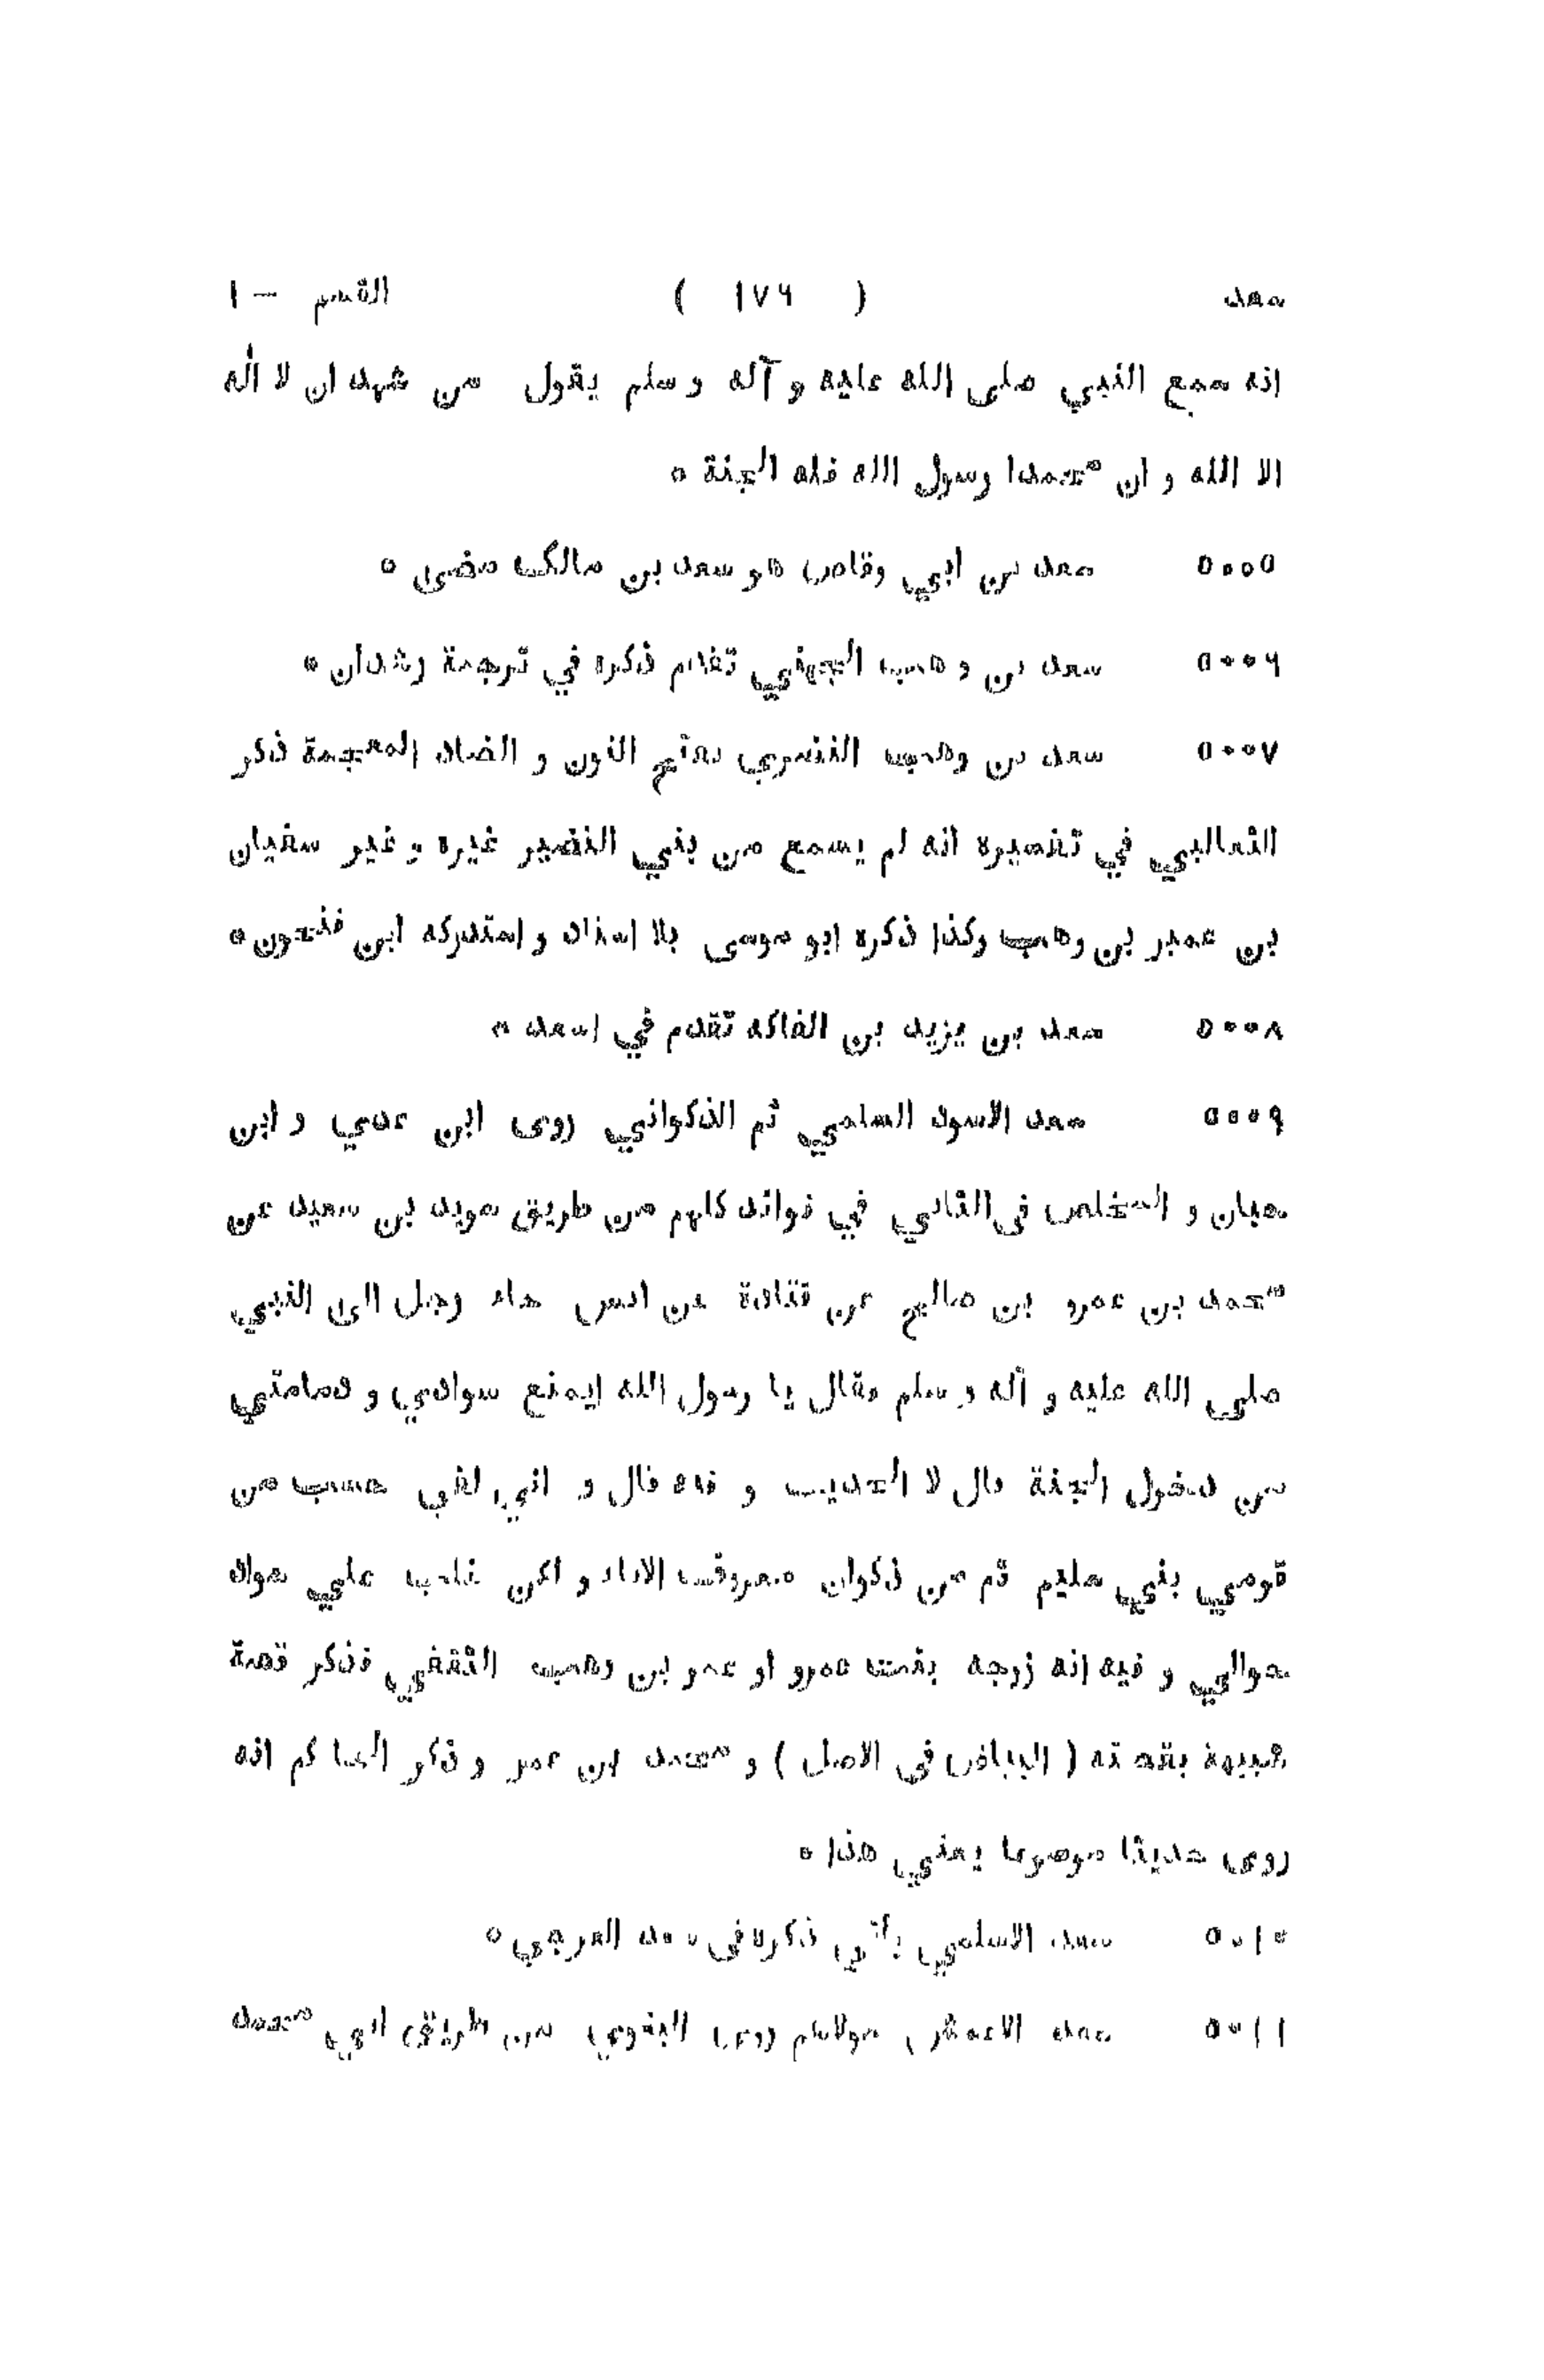 سعد ( ١٧٦ ) القسم - ١
انه سمع النبي صلى الله عليه و آله و سلم يقول من شهد ان لا اله
الا الله و ان محمدا رسول الله فله الجنة ٥
٥٠٠٥ سعد بن ابي وقاص هو سعد بن مالک مضى ٥
٥٠٠٦ سعد بن وهب الجهني تقدم ذكره في ترجمة رشدان ٥
٥٠٠٧ سعد بن وهب النضري بفتح النون و الضاد المعجمة ذكر
الثعالبي في تفسيره انه لم يسمع من بني النضير غيره و غير سفيان
بن عمير بن وهب وكذا ذكره ابو موسى بلا اسناد و استدركه ابن فتحون ٥
٥٠٠٨ سعد بن يزيد بن الفاكه تقدم في اسعد ٥
٥٠٠٩ سعد الاسود السلمي ثم الذكواني روى ابن عدي و ابن
حبان و المخلص فى الثاني في فوائد كلهم من طريق سويد بن سعيد عن
محمد بن عمرو بن صالح عن قتادة عن انس جاء رجل الى النبي
صلى الله عليه و آله و سلم فقال يا رسول الله ايمنع سوادي و دمامتي
من دخول الجنة قال لا الحديث و فيه قال و اني لفي حسب من
قومي بني سليم ثم من ذكوان معروف الاباء و لكن غلب علي سواد
خوالي و فيه انه زوجه بنت عمرو او عمر بن وهب الثقفي فذكر قصة
شبيهة بقصته ( البياض فى الاصل ) و محمد بن عمر و ذكر الحاكم انه
روى حديثا موضوعا يعني هذا ٥
٥٠١٠ سعد الاسلمي يأتي ذكره فى سعد العرجي ٥
٥٠١١ سعد الاعمش مولاهم روى البغوي من طريق ابي محمد